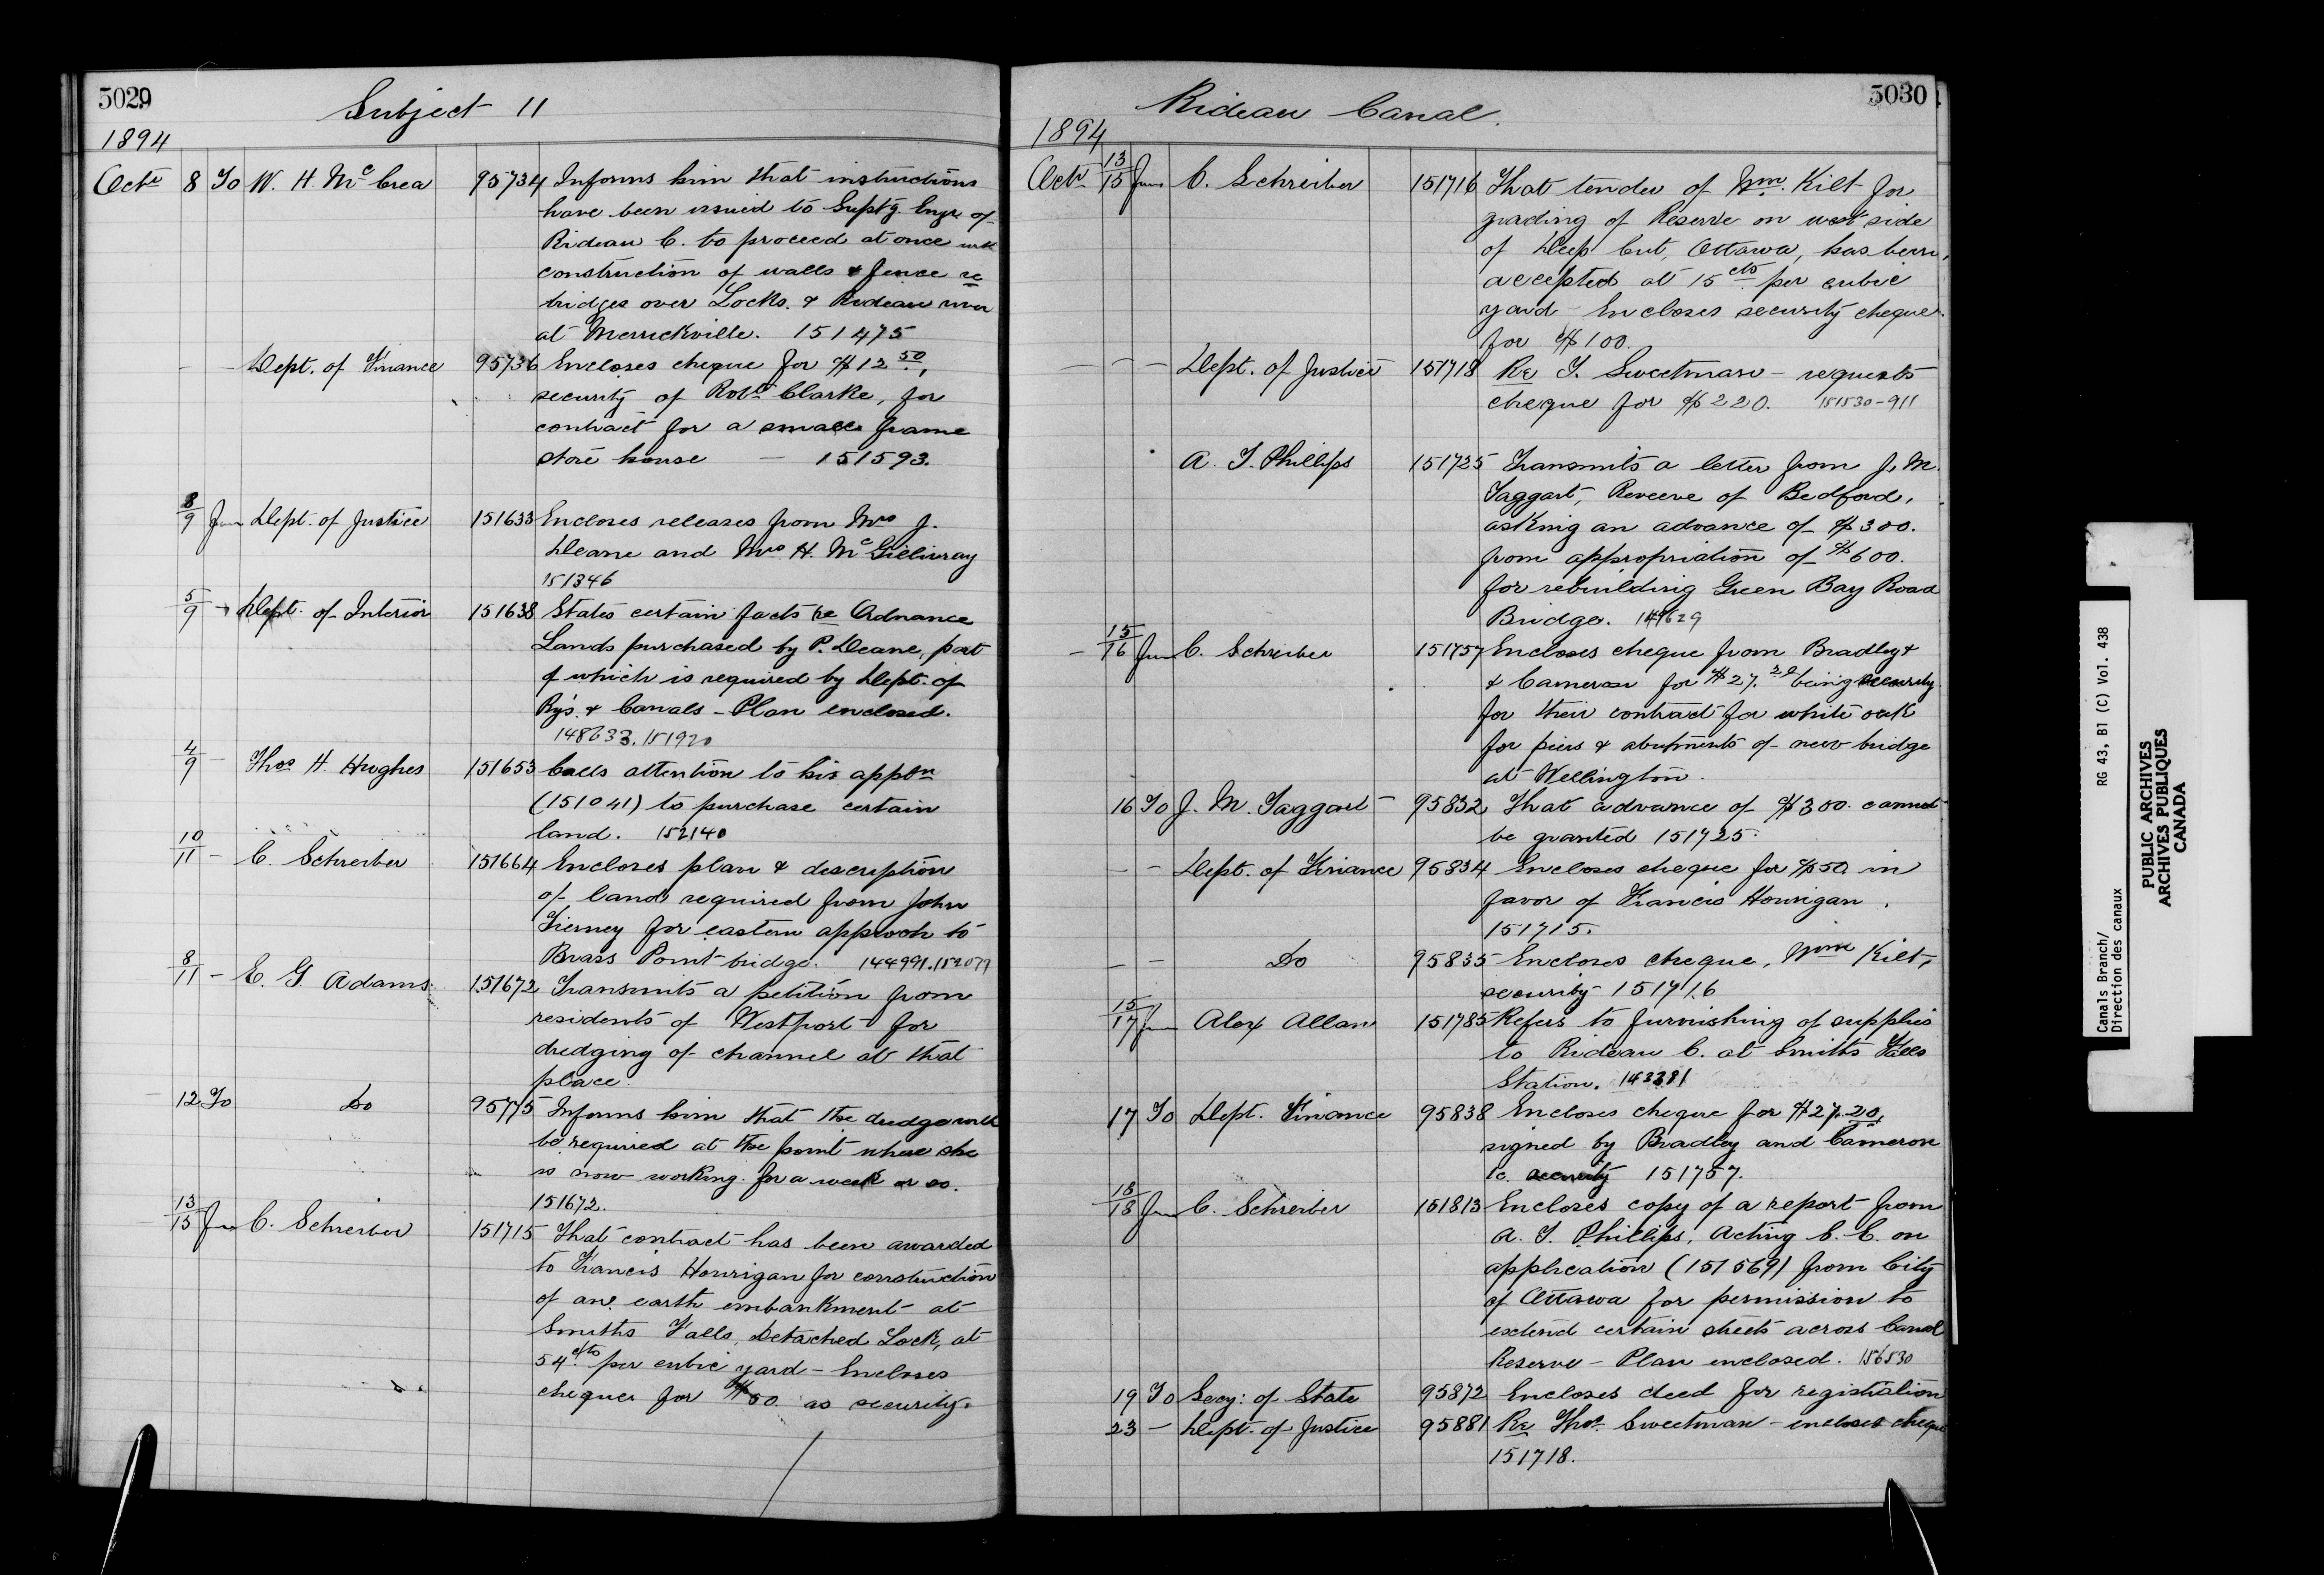 5029
Subject 11
1894
Octr 8 To W. H. McCrea 95734 Informs him that instructions
have been issued to Suptg. Engr of
Rideau C. to proceed at once with
construction of walls & fence re
bridges over Locks & Rideau river
at Merrickville. 151475
- - Dept. of Finance 95736 Encloses cheque for $12 50,
security of Robt Clarke, for
contract for a small frame
store house - 151593.
8/9 From Dept. of Justice 151633 Encloses releases from Mrs J.
Deane and Mrs H. McGillivray
151346
5/9 - Dept. of Interior 151638 States certain facts re Ordnance
Lands purchased by P. Deane, part
of which is required by Dept. of
Rys. & Canals - Plan enclosed.
148633. 151920
4/9 - Thos H. Hughes 151653 Calls attention to his apptn
(151041) to purchase certain
land. 152140
10/11 - C. Schreiber 151664 Encloses plan & description
of land required from John
Tierney for eastern approach to
Brass Point bridge. 144991. 152079
8/11 - E. G Adams 151672 Transmits a petition from
residents of Westport for
dredging of channel at that
place.
12 To Do 95775 Informs him that the dredge will
be required at the point where she
is now working for a week or so.
151672.
13/15 From C. Schreiber 151715 That contract has been awarded
to Francis Hourigan for construction
of an earth embankment at
Smiths Falls, Detached Lock, at
54 cts per cubic yard - Encloses
cheque for $50. as security.
Rideau Canal.
5030
1894
Octr 13/15 From C. Schreiber 151716 That tender of Wm. Kilt for
grading of Reserve on west side
of Deep Cut, Ottawa, has been
accepted at 15 cts per cubic
yard - Encloses security cheque
for $100.
- - - Dept. of Justice 151718 Re T. Sweetman - requests
cheque for $220. 151530-911
A. T. Phillips 151725 Transmits a letter from J. M.
Taggart, Reeve of Bedford,
asking an advance of $300.
from appropriation of $600.
for rebuilding Green Bay Road
Bridge. 149629
- 15/16 From C. Schreiber 151757 Encloses cheque from Bradley &
& Cameron for $27. 20 being security
for their contract for white oak
for piers & abutments of new bridge
at Wellington.
16 To J. M. Taggart 95832 That advance of $300. cannot
be granted 151725.
- - Dept. of Finance 95834 Encloses cheque for $50 in
favor of Francis Hourigan.
151715.
- - Do 95835 Encloses cheque, Wm Kilt,
security 151716
15/17 From Alex Allan 151785 Refers to furnishing of supplies
to Rideau C. at Smiths Falls
Station. 143381
17 To Dept. Finance 95838 Encloses cheque for $27.20,
signed by Bradley and Cameron
security 151757.
18/18 From C. Schreiber 151813 Encloses copy of a report from
A. T. Phillips, Acting S. E. on
application (151569) from City
of Ottawa for permission to
extend certain streets across Canal
Reserve - Plan enclosed. 156530
19 To Secy: of State 95872 Encloses deed for registration
23 - Dept. of Justice 95881 Re Thos. Sweetman - encloses cheque
151718.
Canals Branch/ RG 43, B1 (C) Vol. 438
Direction des canaux
PUBLIC ARCHIVES
ARCHIVES PUBLIQUES
CANADA